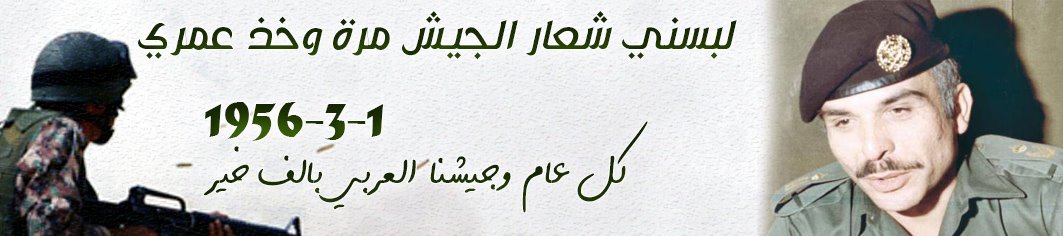 لبسني شعار الجيش مرة وخذ عمري
1956-3-1
كل عام وجيشنا العربي بالف خير